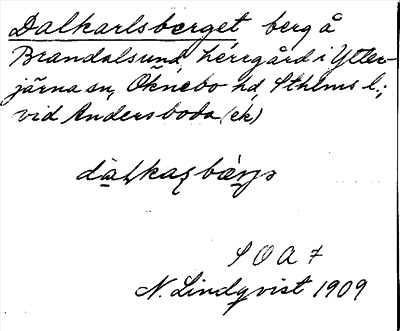 Dalkarlsberget berg å
Brandalsund, herrgård i Ytter-
järna sn, Öknebo hd, Sthlms l.;
vid Andersboda (ek)
S O A 7
N. Lindqvist 1909